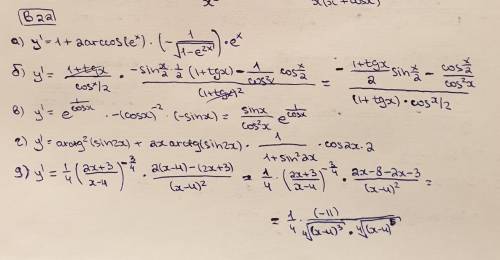 x    x(x+cosx)
В22
а) y' = 1 + 2arccos(eˣ) · (- 1/√(1-e²ˣ)) · eˣ
б) y' = (1+tgx)/(cos x/2) · (-sin x/2 · 1/2 (1+tgx) - 1/cos²x · cos x/2)/(1+tgx)² = (- (1+tgx)/2 sin x/2 - (cos x/2)/(cos²x))/((1+tgx) · cos x/2)
в) y' = e^(1/cosx) · -(cosx)⁻² · (-sinx) = sinx/cos²x e^(1/cosx)
г) y' = arctg²(sin2x) + 2x arctg(sin2x) · 1/(1+sin²2x) · cos2x · 2
д) y' = 1/4 ((2x+3)/(x-4))^(-3/4) · (2(x-4)-(2x+3))/(x-4)² = 1/4 · ((2x+3)/(x-4))^(-3/4) · (2x-8-2x-3)/(x-4)² =
= 1/4 · (-11)/(⁴√(x-4)³ · ⁴√(x-4)⁵)